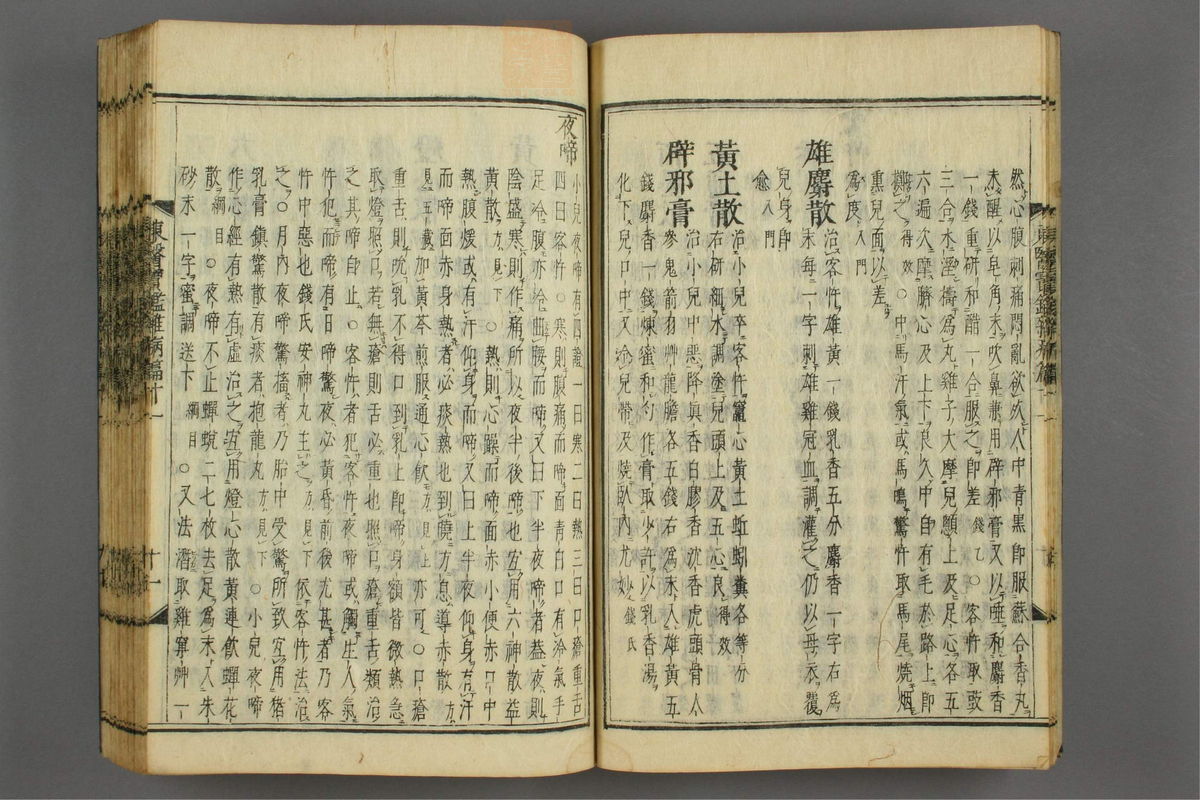 然心腹刺痛悶亂欲死人中青黑即服蘇合香丸
未醒以皂角末吹鼻兼用辟邪膏又以唾和麝香
一錢重研和醋一合服之即差錢乙○客忤取豉
三合水濕擣爲丸雞子大摩兒顖上及足心各五
六遍次摩臍心及上下良久中自有毛於路上即
擲之得效○中馬汗氣或馬鳴驚忤取馬尾燒烟
熏兒面以差
爲度入門
雄麝散
治客忤雄黃一錢乳香五分麝香一字右爲
末每一字刺雄雞冠血調灌之仍以母衣覆
兒身即
愈入門
黃土散
治小兒卒客忤竈心黃土蚯蚓糞各等分
右研細水調塗兒頭上及五心良得效
辟邪膏
治小兒中惡降真香白膠香沈香虎頭骨人
參鬼箭羽草龍膽各五錢右爲末入雄黃五
錢麝香一錢煉蜜和勻作膏取少許以乳香湯
化下兒口中又令兒帶及燒臥內尤妙錢氏
夜啼
小兒夜啼有四證一曰寒二曰熱三曰口瘡重舌
四曰客忤○寒則腹痛而啼面青白口有冷氣手
足冷腹亦冷曲腰而啼又曰下半夜啼者盖夜則
陰盛寒則作痛所以夜半後啼也宜用六神散益
黃散方見下○熱則心躁而啼面赤小便赤口中
熱腹煖或有汗仰身而啼又曰上半夜仰身有汗
而啼面赤身熱者必痰熱也到曉方息導赤散方
見五藏加黃芩煎服通心飮方見上亦可○口瘡
重舌則吮乳不得口到乳上即啼身額皆微熱急
取燈照口若無瘡則舌必重也照口瘡重舌類治
之其啼自止○客忤者犯客忤夜啼或觸生人氣
忤犯而啼有日啼驚夜必黃昏前後尤甚者乃客
忤中惡也錢氏安神丸主之方見下依客忤法治
之○月內夜啼驚搐者乃胎中受驚所致宜用猪
乳膏鎮驚散有痰者抱龍丸方見下○小兒夜啼
作心經有熱有虛治之宜用燈心散黃連飮蟬花
散綱目○夜啼不止蟬蛻二七枚去足爲末入朱
砂末一字蜜調送下綱目○又法潛取雞窠艸一
東醫寶鑑雜病篇十一
十一
東醫寶鑑雜病篇十一